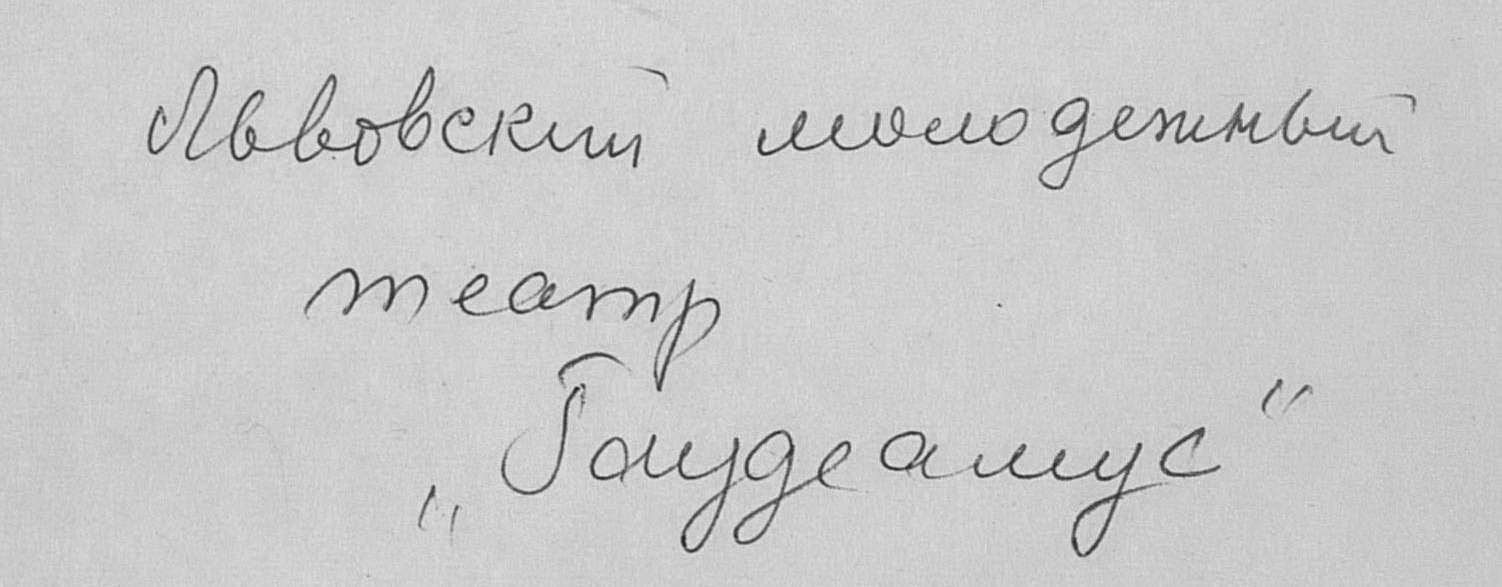 Львовский молодежный
театр
„Гаудеамус"